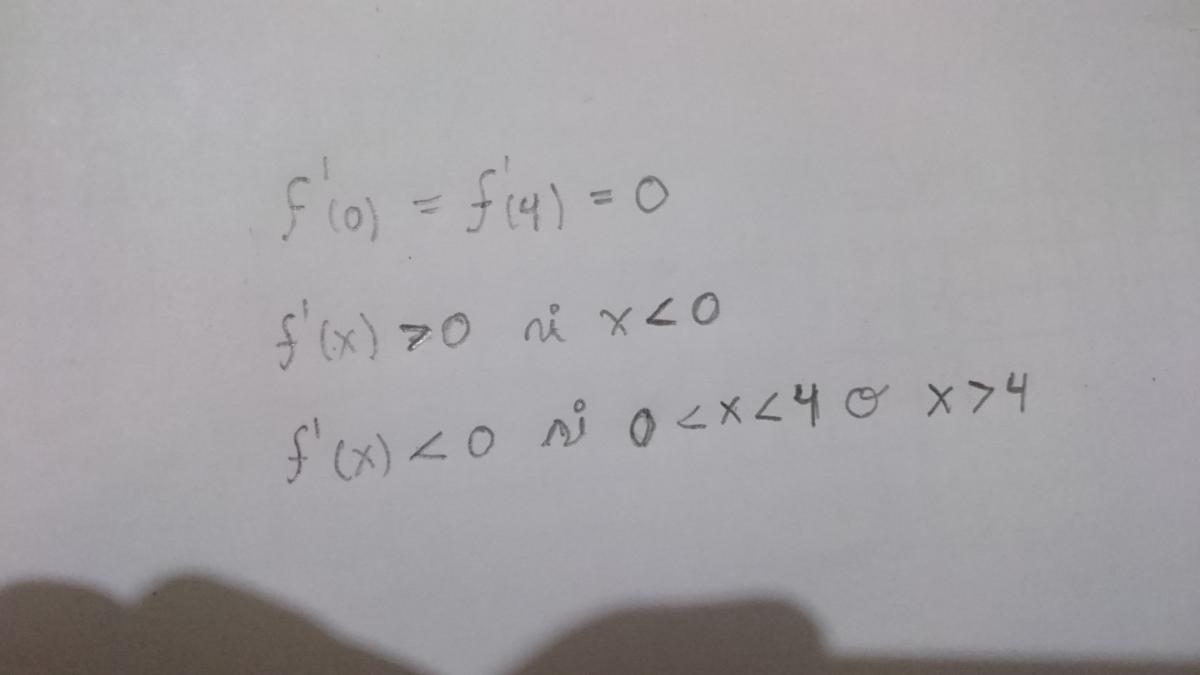 f'(0) = f'(4) = 0
f'(x) > 0 si x < 0
f'(x) < 0 si 0 < x < 4 o x > 4